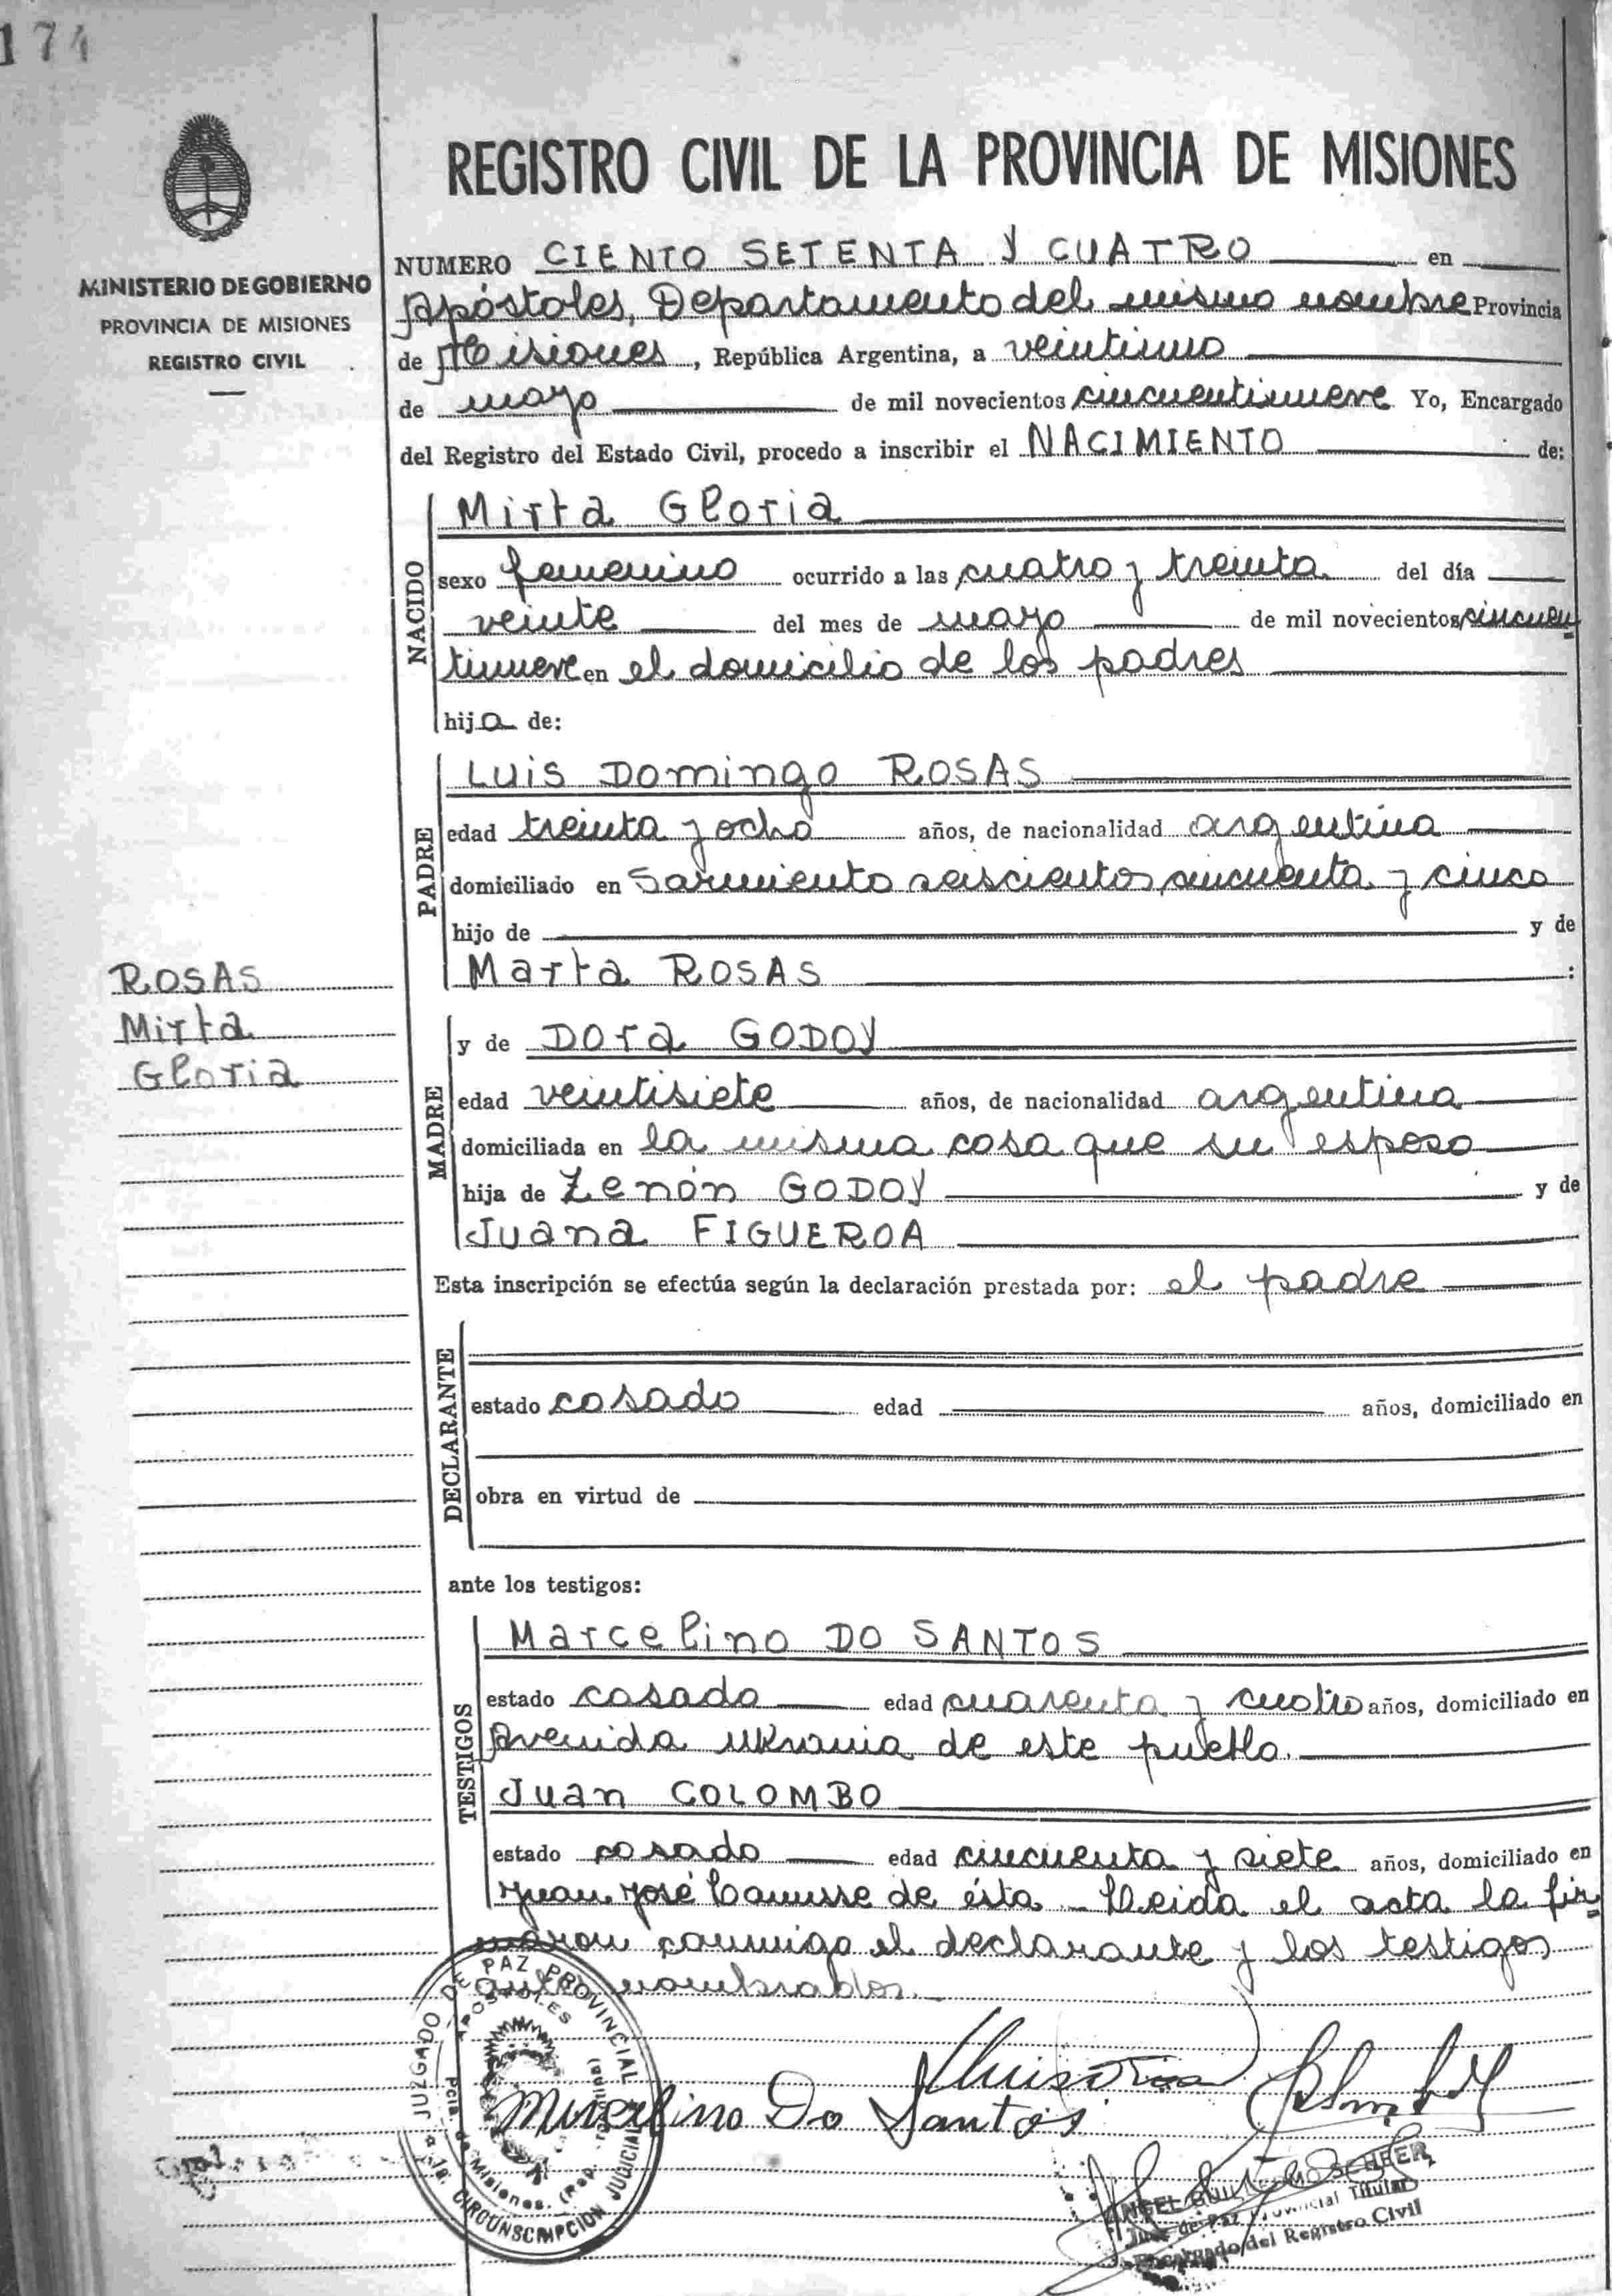 174
MINISTERIO DE GOBIERNO
PROVINCIA DE MISIONES
REGISTRO CIVIL
REGISTRO CIVIL DE LA PROVINCIA DE MISIONES
NUMERO CIENTO SETENTA Y CUATRO en
Apóstoles, Departamento del mismo nombre Provincia
de Misiones, República Argentina, a veintiuno
de mayo de mil novecientos cincuentinueve Yo, Encargado
del Registro del Estado Civil, procedo a inscribir el NACIMIENTO de:
NACIDO
Mirta Gloria
sexo femenino ocurrido a las cuatro y treinta del día
veinte del mes de mayo de mil novecientos cincuen
tinueve en el domicilio de los padres
hija de:
PADRE
Luis Domingo ROSAS
edad treinta y ocho años, de nacionalidad argentina
domiciliado en Sarmiento seiscientos cincuenta y cinco
hijo de y de
Marta ROSAS
ROSAS
Mirta
Gloria
MADRE
y de Dora GODOY
edad veintisiete años, de nacionalidad argentina
domiciliada en la misma casa que su esposo
hija de Zenón GODOY y de
Juana FIGUEROA
Esta inscripción se efectúa según la declaración prestada por: el padre
DECLARANTE
estado casado edad años, domiciliado en
obra en virtud de
ante los testigos:
TESTIGOS
Marcelino DO SANTOS
estado casado edad cuarenta y cuatro años, domiciliado en
Avenida Ukrania de este pueblo.
Juan COLOMBO
estado casado edad cincuenta y siete años, domiciliado en
Juan José Lanusse de ésta. Leida el acta la fir
maron conmigo el declarante y los testigos
antes nombrados.
JUZGADO DE PAZ PROVINCIAL
APOSTOLES
Pcia. de Misiones. (Rep.
1a. CIRCUNSCRIPCION JUDICIAL
Marcelino Do Santos
ANGEL GUILLERMO SCHEER
Juez de Paz Provincial Titular
Encargado del Registro Civil